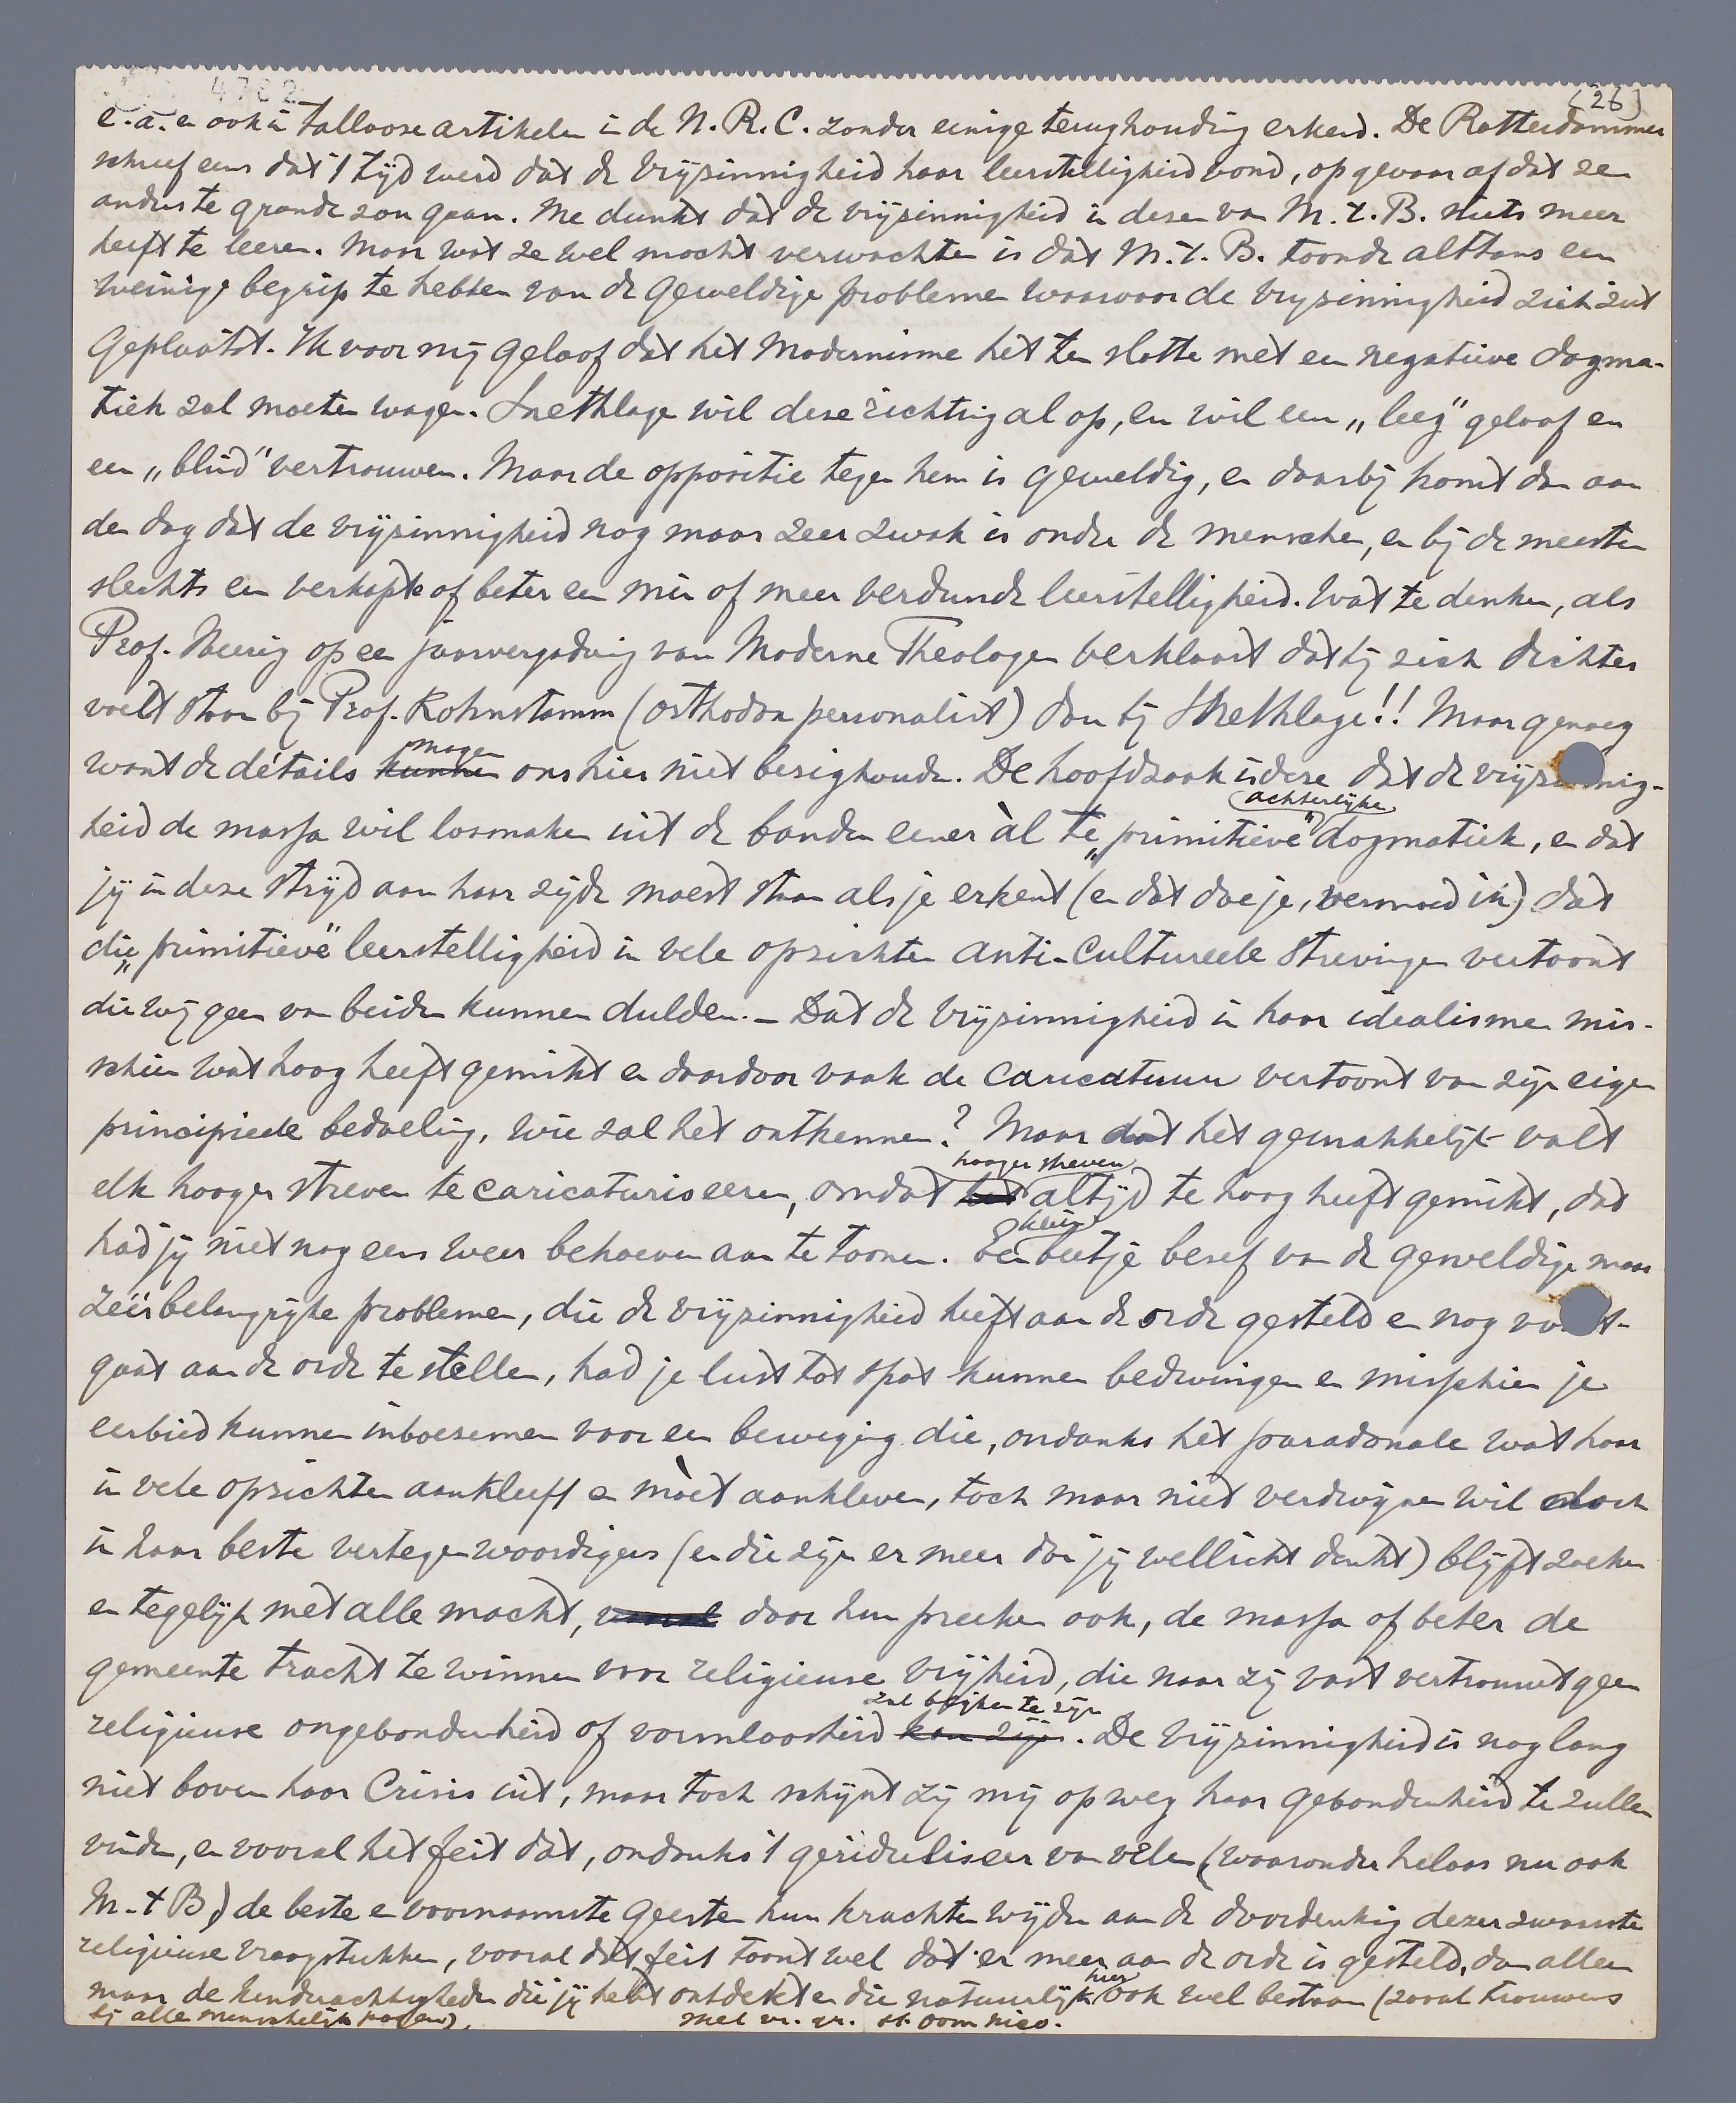 4782
(26)
e.a. en ook in tallooze artikelen in de N.R.C. zonder eenige terughouding erkend. De Rotterdammer
schreef eens dat 't tijd werd dat de vrijzinnigheid haar leerstelligheid vond, op gevaar af dat ze
anders te gronde zou gaan. Me dunkt dat de vrijzinnigheid in dezen van M.t.B. niets meer
heeft te leeren. Maar wat ze wel mocht verwachten is dat M.t.B. toonde althans een
weinig begrip te hebben van de geweldige problemen waarvoor de vrijzinnigheid zich ziet
geplaatst. Ik voor mij geloof dat het Modernisme het ten slotte met een negatieve dogma-
tiek zal moeten wagen. Snethlage wil deze richting al op, en wil een „leeg" geloof en
een „blind" vertrouwen. Maar de oppositie tegen hem is geweldig, en daarbij komt dan aan
den dag dat de vrijzinnigheid nog maar zeer zwak is onder de menschen, en bij de meesten
slechts een verkapte of beter een min of meer verdunde leerstelligheid. Wat te denken, als
Prof. Heering op een jaarvergadering van Moderne Theologen verklaart dat hij zich dichter
voelt staan bij Prof. Kohnstamm (orthodox personalist) dan bij Snethlage!! Maar genoeg
want de détails kunnen mogen ons hier niet bezighouden. De hoofdzaak is deze dat de vrijzinnig-
heid de massa wil losmaken uit de banden eener àl te „primitieve" achterlijke dogmatiek, en dat
jij in deze strijd aan haar zijde moest staan als je erkent (en dat doe je, vermoed ik) dat
die „primitieve" leerstelligheid in vele opzichten anti-cultureele strevingen vertoont
die wij geen van beiden kunnen dulden. – Dat de vrijzinnigheid in haar idealisme mis-
schien wat hoog heeft gemikt en daardoor vaak de caricatuur vertoont van zijn eigen
principieele bedoeling, wie zal het ontkennen? Maar dat het gemakkelijk valt
elk hooger streven te caricaturiseeren, omdat het hooger streven altijd te hoog heeft gemikt, dat
had jij niet nog eens weer behoeven aan te toonen. Een klein beetje besef van de geweldige maar
zéér belangrijke problemen, die de vrijzinnigheid heeft aan de orde gesteld en nog voort-
gaat aan de orde te stellen, had je lust tot spot kunnen bedwingen en misschien je
eerbied kunnen inboezemen voor een beweging die, ondanks het paradoxale wat haar
in vele opzichten aankleeft en mòet aankleven, toch maar niet verdwijnen wil doch
in haar beste vertegenwoordigers (en die zijn er meer dan jij wellicht denkt) blijft zoeken
en tegelijk met alle macht, vooral door hun preeken ook, de massa of beter de
gemeente tracht te winnen voor religieuse vrijheid, die naar zij vast vertrouwt geen
religieuse ongebondenheid of vormloosheid kan zijn zal blijken te zijn. De vrijzinnigheid is nog lang
niet boven haar Crisis uit, maar toch schijnt zij mij op weg haar gebondenheid te zullen
vinden, en vooral het feit dat, ondanks 't geridiculiseer van velen (waaronder helaas nu ook
M.t B.) de beste en voornaamste geesten hun krachten wijden aan de doordenking dezer zwaarste
religieuse vraagstukken, vooral dàt feit toont wel dat er meer aan de orde is gesteld, dan alleen
maar de kinderachtigheden die jij hebt ontdekt en die natuurlijk hier ook wel bestaan (zooals trouwens
bij alle menschelijk pogen).
met vr. gr. st. Oom Nico.